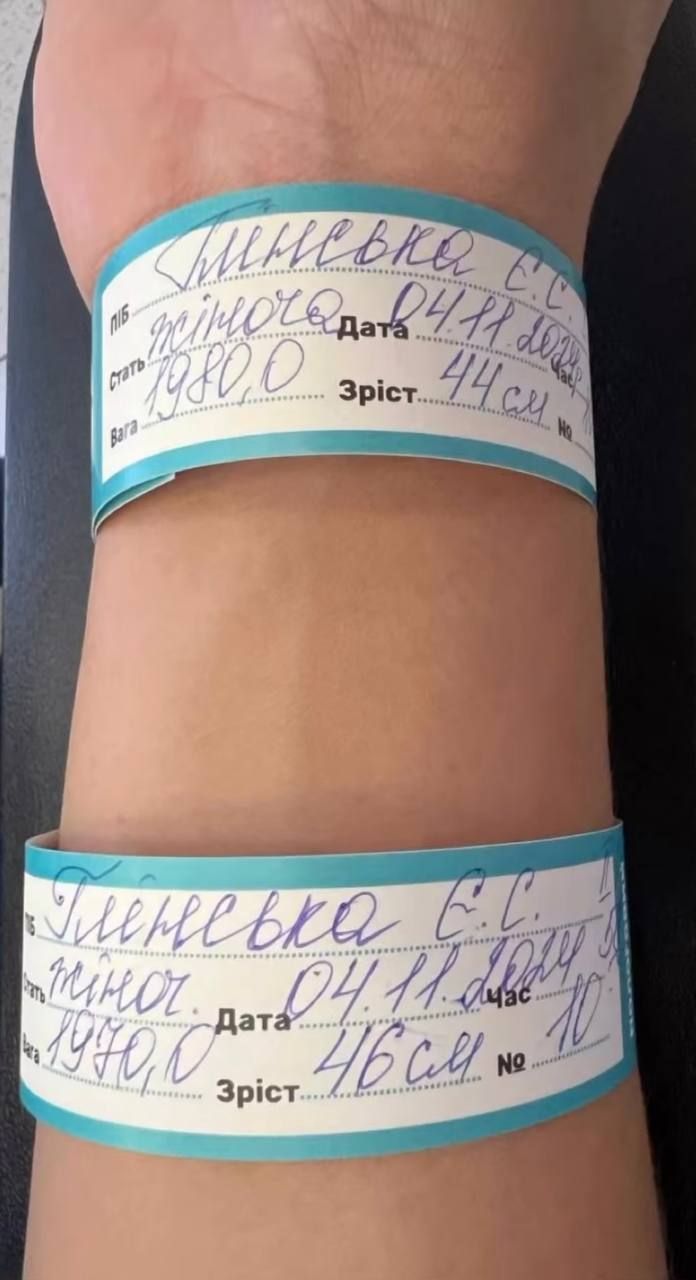 ПІБ Глінська Є. С.
Стать жіноча Дата 04.11.2024 Час
Вага 1980,0 Зріст 44 см №
ПІБ Глінська Є. С.
Стать жіноч. Дата 04.11.2024 Час
Вага 1970,0 Зріст 46 см № 10